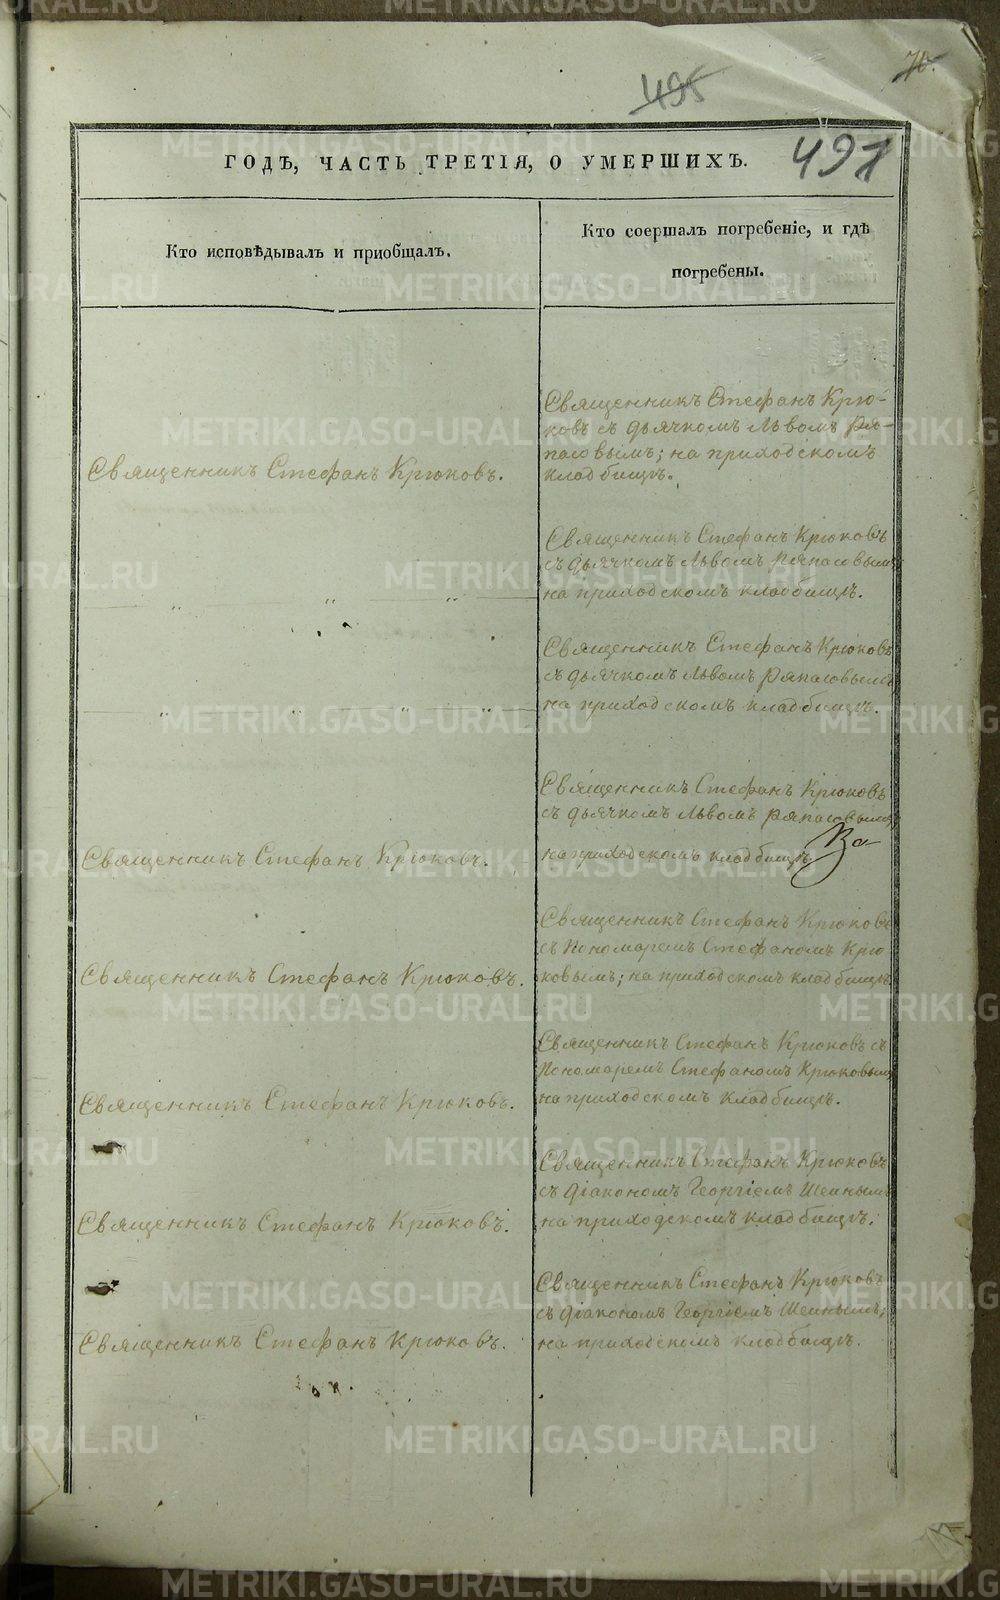 70.
495
491
ГОДѢ, ЧАСТЬ ТРЕТІЯ, О УМЕРШИХЪ.
Кто исповѣдывалъ и приобщалъ.
Кто соершалъ погребеніе, и гдѣ
погребены.
Священникъ Стефанъ Крю-
ковъ съ дьячкомъ Львомъ Ря-
пасовымъ; на приходскомъ
кладбищѣ.
Священникъ Стефанъ Крюковъ.
Священникъ Стефанъ Крюковъ
съ дьячкомъ Львомъ Ряпасовымъ
на приходскомъ кладбищѣ.
" " "
Священникъ Стефанъ Крюковъ
съ дьячкомъ Львомъ Ряпасовымъ
на приходскомъ кладбищѣ.
" " " "
Священникъ Стефанъ Крюковъ
съ дьячкомъ Львомъ Ряпасовымъ,
на приходскомъ кладбищѣ.
Священникъ Стефанъ Крюковъ.
Священникъ Стефанъ Крюковъ
съ Пономаремъ Стефаномъ Крю
ковымъ; на приходскомъ кладбищѣ
Священникъ Стефанъ Крюковъ.
Священникъ Стефанъ Крюковъ съ
Пономаремъ Стефаномъ Крюковымъ
на приходскомъ кладбищѣ.
Священникъ Стефанъ Крюковъ.
Священникъ Стефанъ Крюковъ
съ Діакономъ Георгіемъ Шеинымъ
на приходскомъ кладбищѣ.
Священникъ Стефанъ Крюковъ.
Священникъ Стефанъ Крюковъ
съ Діакономъ Георгіемъ Шеинымъ;
на приходскомъ кладбищѣ.
Священникъ Стефанъ Крюковъ.
METRIKI.GASO-URAL.RU